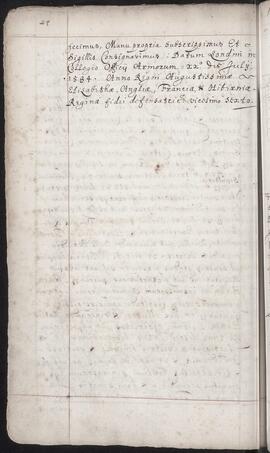 fecimus, Manu propria subscripsimus Et
Sigillis Consignavimus. Datum Londini in
Collegio Officij Armorum xx° die Julij
1584. Anno Regni Augustissimæ
Elizabethæ, Angliæ, Franciæ, & Hiberniæ
Reginæ fidei defensatricis vicesimo Sexto.